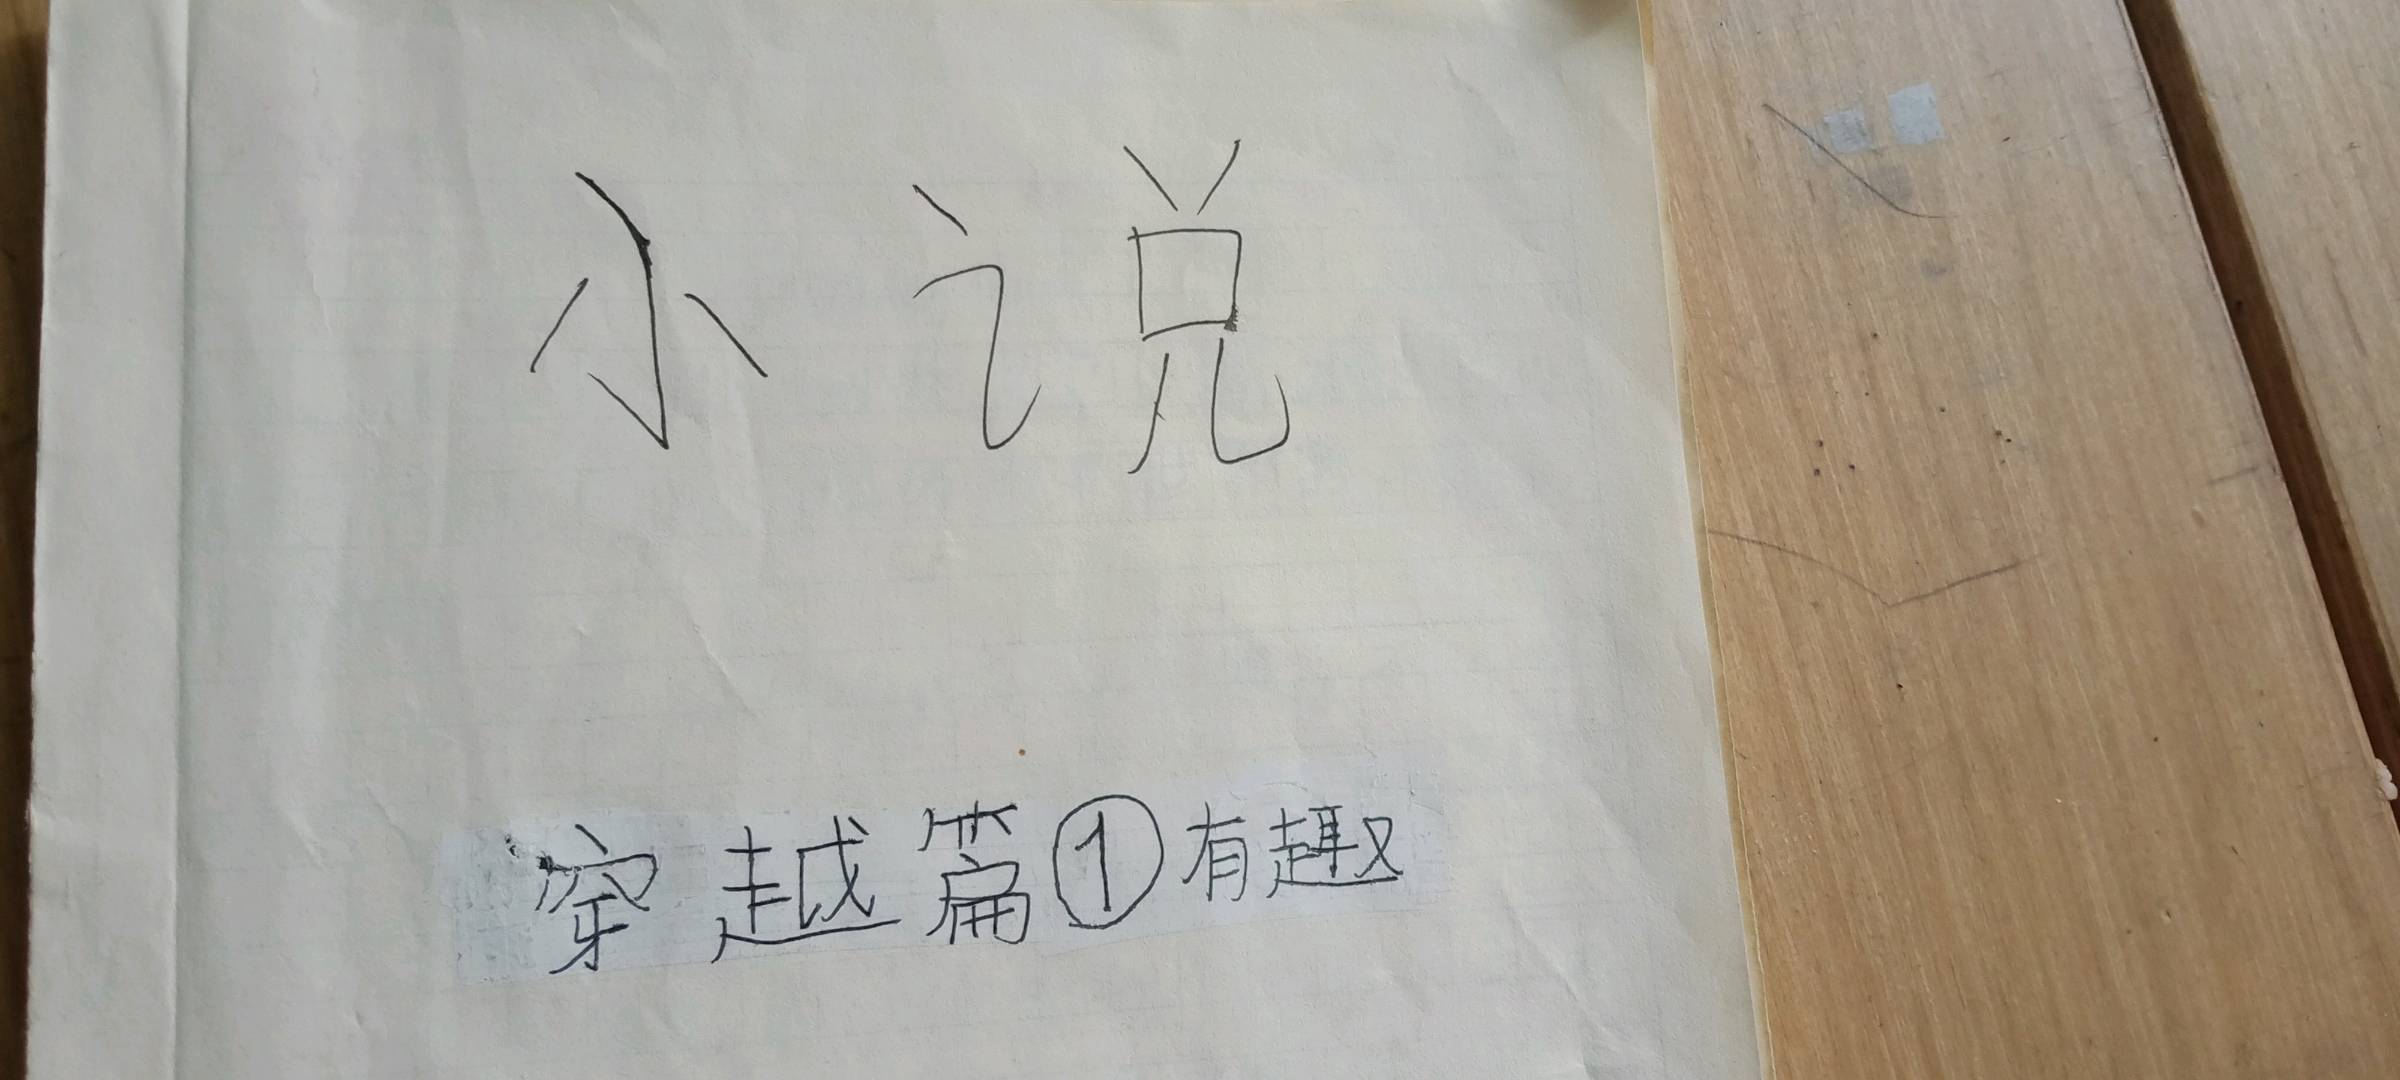 小说
穿越篇①有趣